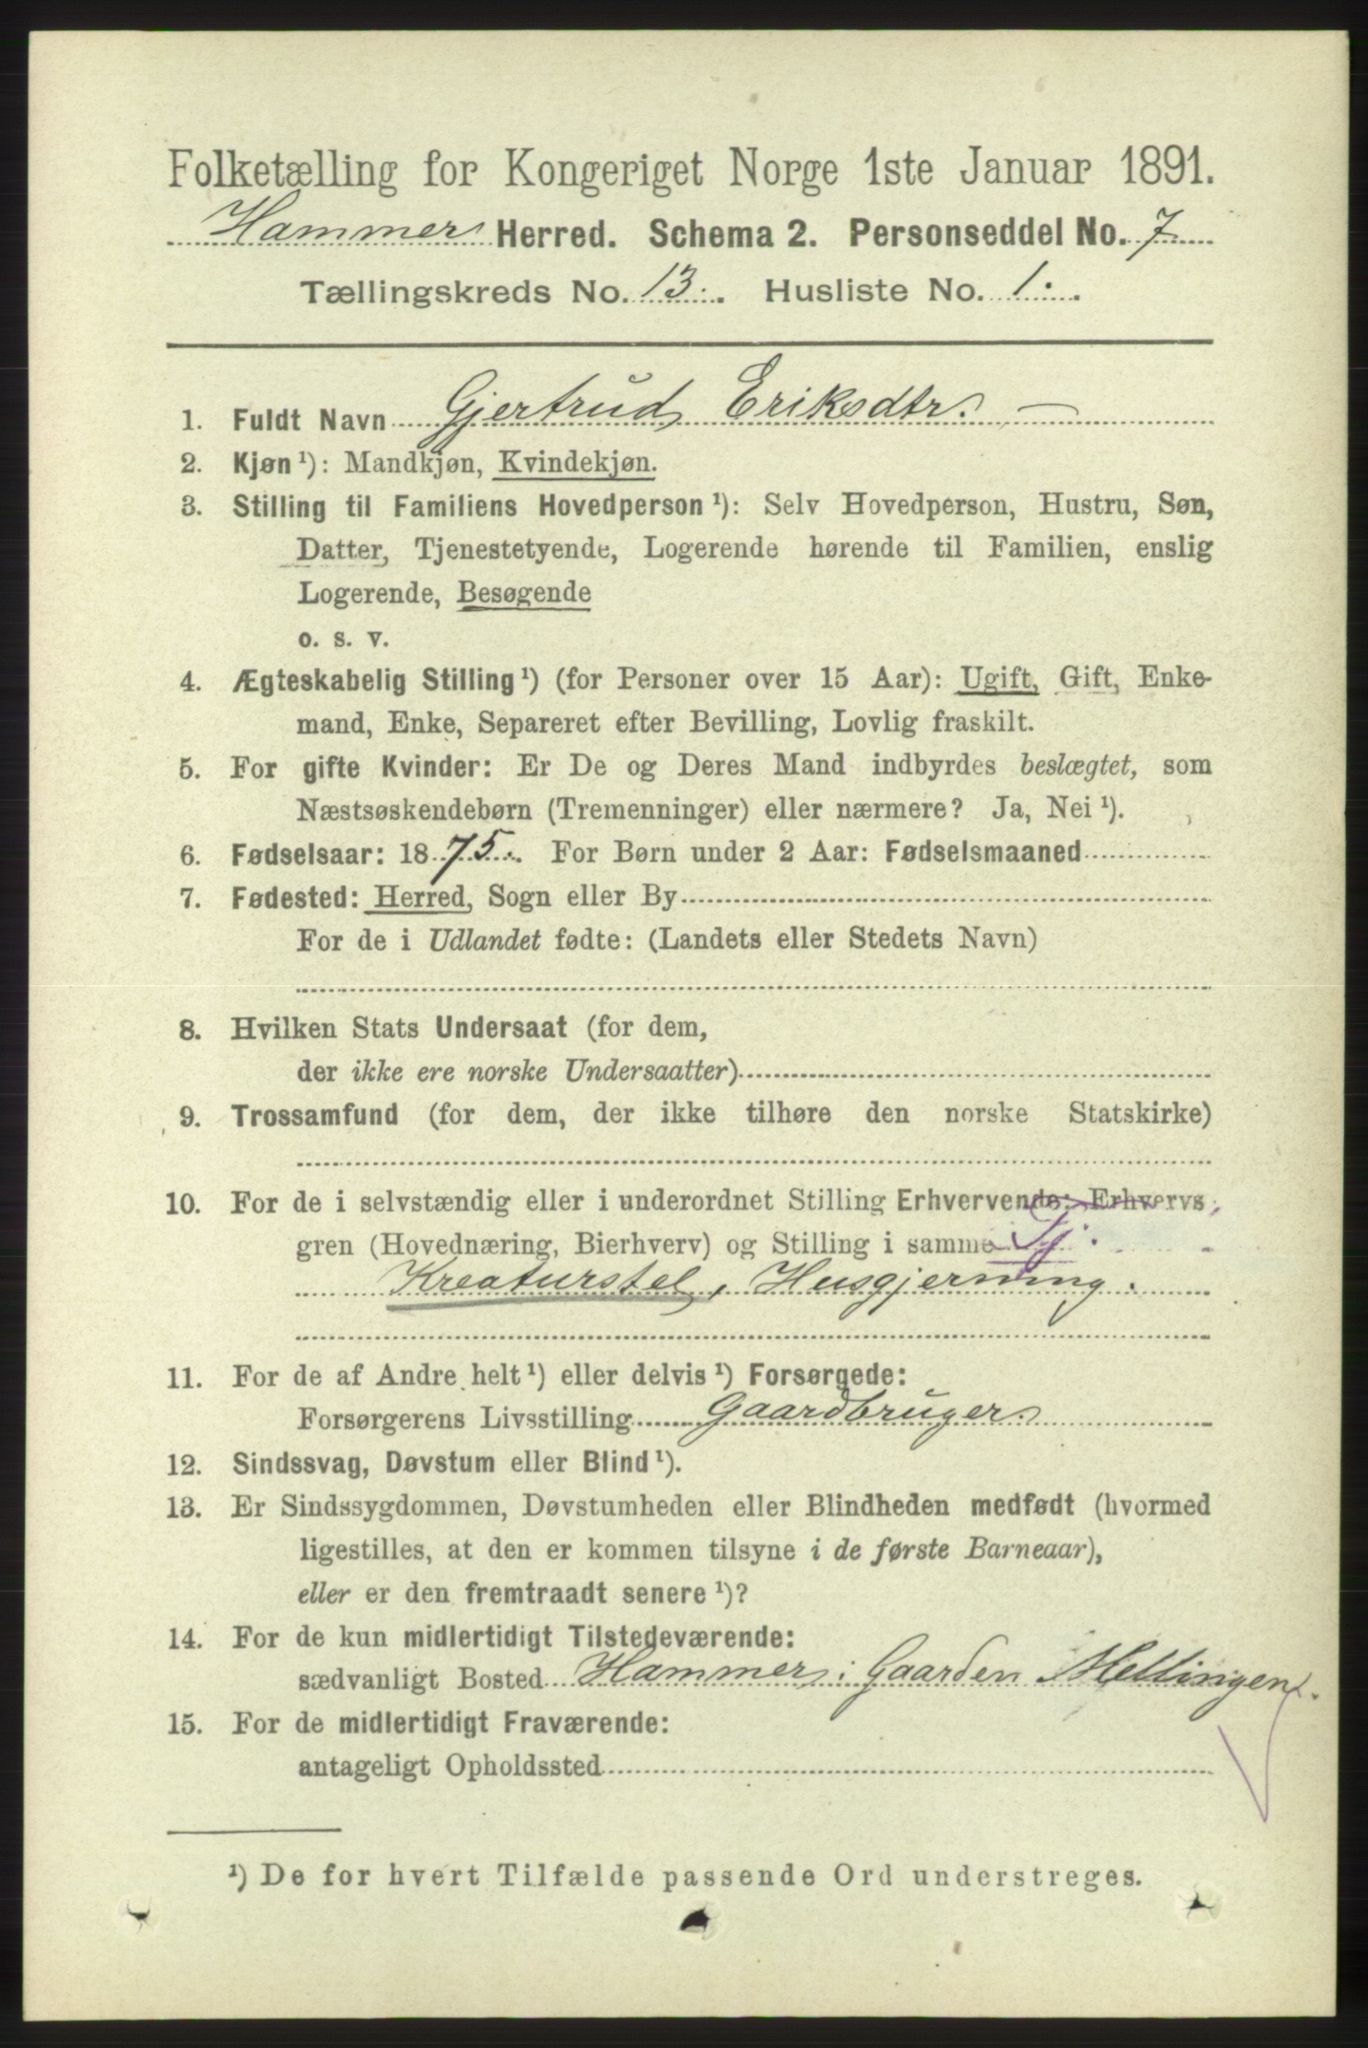 Folketælling for Kongeriget Norge 1ste Januar 1891.
Hammer Herred. Schema 2. Personseddel No. 7
Tællingskreds No. 13. Husliste No. 1.
1. Fuldt Navn Gjertrud Eriksdtr. —
2. Kjøn ¹): Mandkjøn, Kvindekjøn.
3. Stilling til Familiens Hovedperson ¹): Selv Hovedperson, Hustru, Søn,
Datter, Tjenestetyende, Logerende hørende til Familien, enslig
Logerende, Besøgende
o. s. v.
4. Ægteskabelig Stilling ¹) (for Personer over 15 Aar): Ugift, Gift, Enke-
mand, Enke, Separeret efter Bevilling, Lovlig fraskilt.
5. For gifte Kvinder: Er De og Deres Mand indbyrdes beslægtet, som
Næstsøskendebørn (Tremenninger) eller nærmere? Ja, Nei ¹).
6. Fødselsaar: 1875. For Børn under 2 Aar: Fødselsmaaned
7. Fødested: Herred, Sogn eller By
For de i Udlandet fødte: (Landets eller Stedets Navn)
8. Hvilken Stats Undersaat (for dem,
der ikke ere norske Undersaatter)
9. Trossamfund (for dem, der ikke tilhøre den norske Statskirke)
10. For de i selvstændig eller i underordnet Stilling Erhvervende: Erhvervs
gren (Hovednæring, Bierhverv) og Stilling i samme Tj.
Kreaturstel, Husgjerning.
11. For de af Andre helt ¹) eller delvis ¹) Forsørgede:
Forsørgerens Livsstilling Gaardbruger
12. Sindssvag, Døvstum eller Blind ¹).
13. Er Sindssygdommen, Døvstumheden eller Blindheden medfødt (hvormed
ligestilles, at den er kommen tilsyne i de første Barneaar),
eller er den fremtraadt senere ¹)?
14. For de kun midlertidigt Tilstedeværende:
sædvanligt Bosted Hammer: Gaarden Mellingen.
15. For de midlertidigt Fraværende:
antageligt Opholdssted
¹) De for hvert Tilfælde passende Ord understreges.